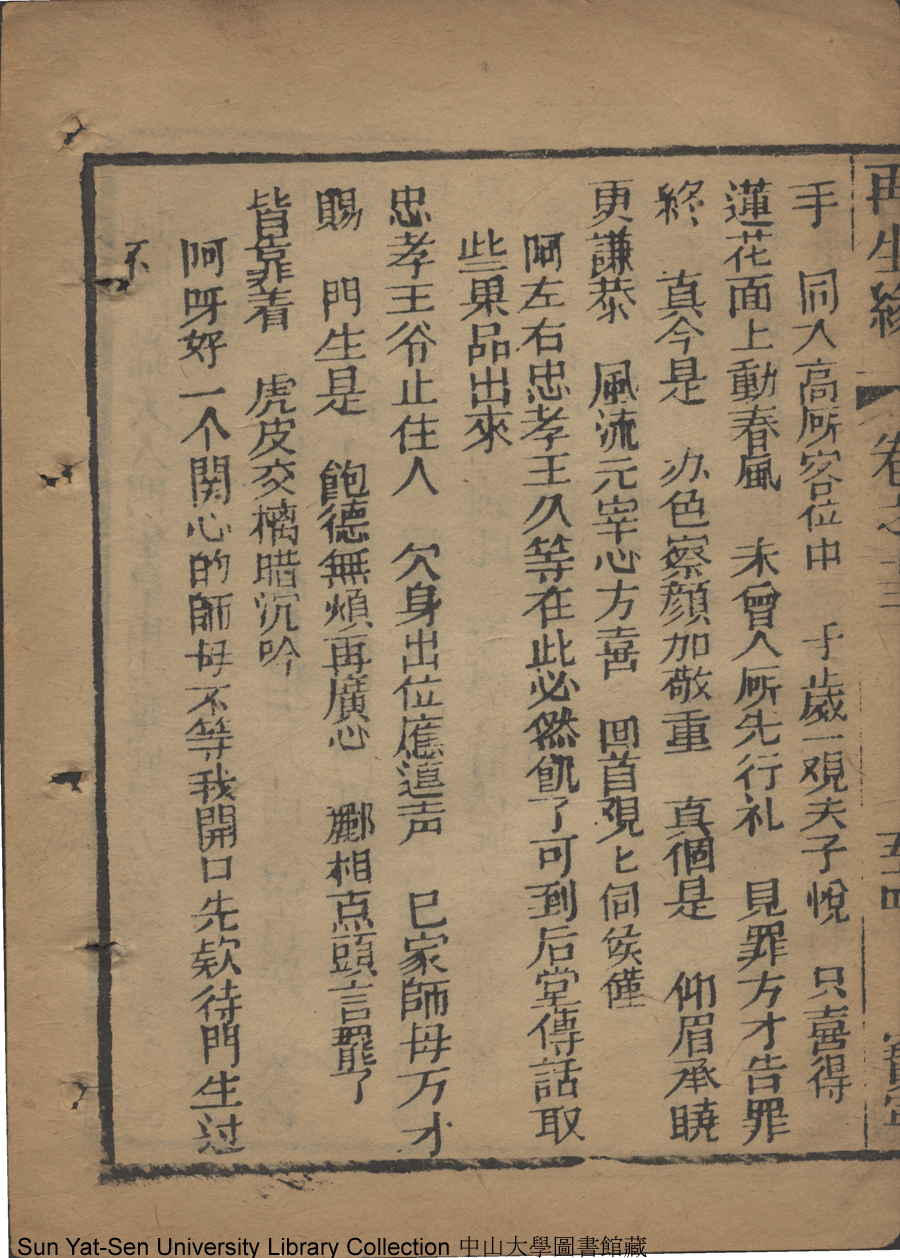 再生緣 卷之三 五四
手 同入高所客位中 千歲一覌夫子悅 只喜得
蓮花面上動春風 未曾人所先行礼 見罪方才告罪
終 真今是 办色察顏加敬重 真個是 仰眉承曉
更謙恭 風流元宰心方喜 回首覌匕伺侯僅
阿左右忠孝王久等在此必然飢了可到后堂傳話取
些菓品出來
忠孝王爷止住人 欠身出位應連声 巳家師母万才
賜 門生是 飽德無煩再廣心 酈相点頭言罷了
皆靠着 虎皮交椅暗沉吟
阿呀好一个関心的師母不等我開口先欵待門生过
不
Sun Yat-Sen University Library Collection 中山大學圖書館藏